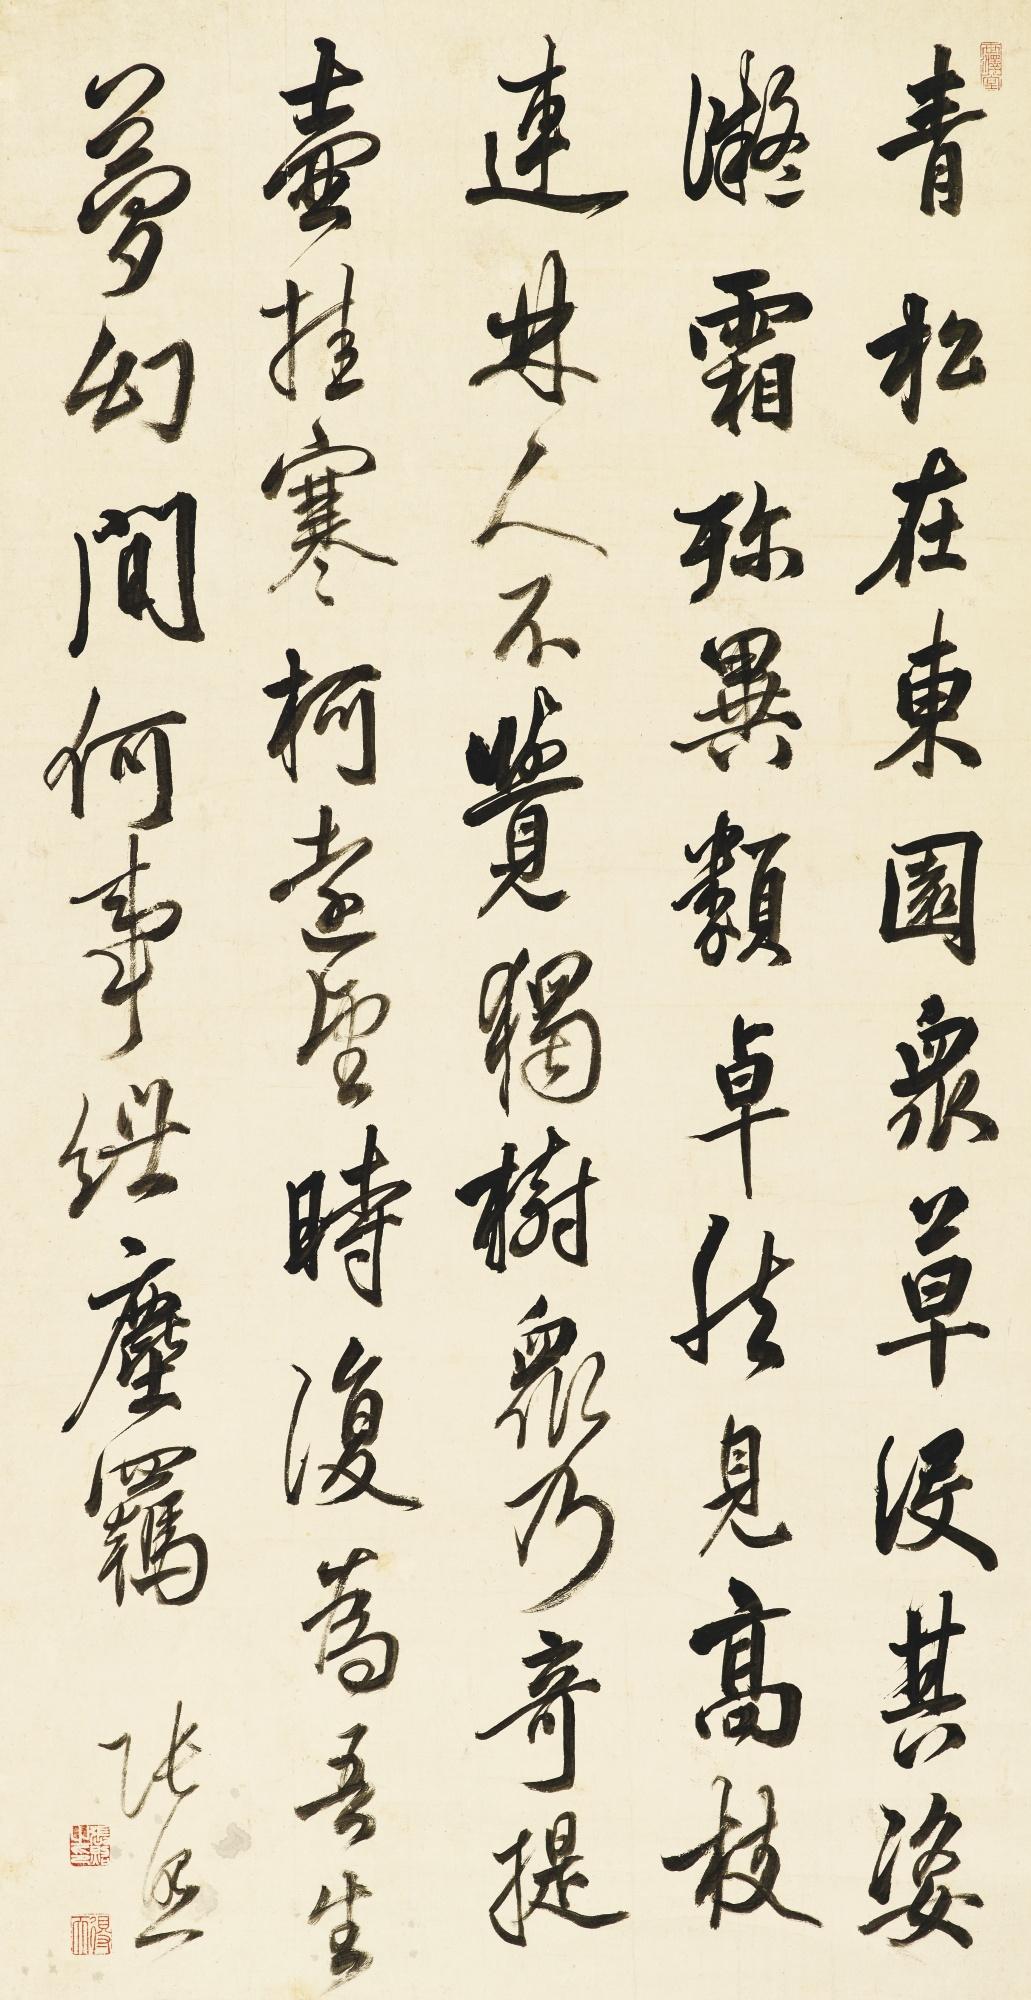 青松在東園衆草沒其姿
凝霜殄異類卓然見高枝
連林人不覺獨樹衆乃奇提
壺挂寒柯遠望時復為吾生
夢幻間何事紲塵羈
張照